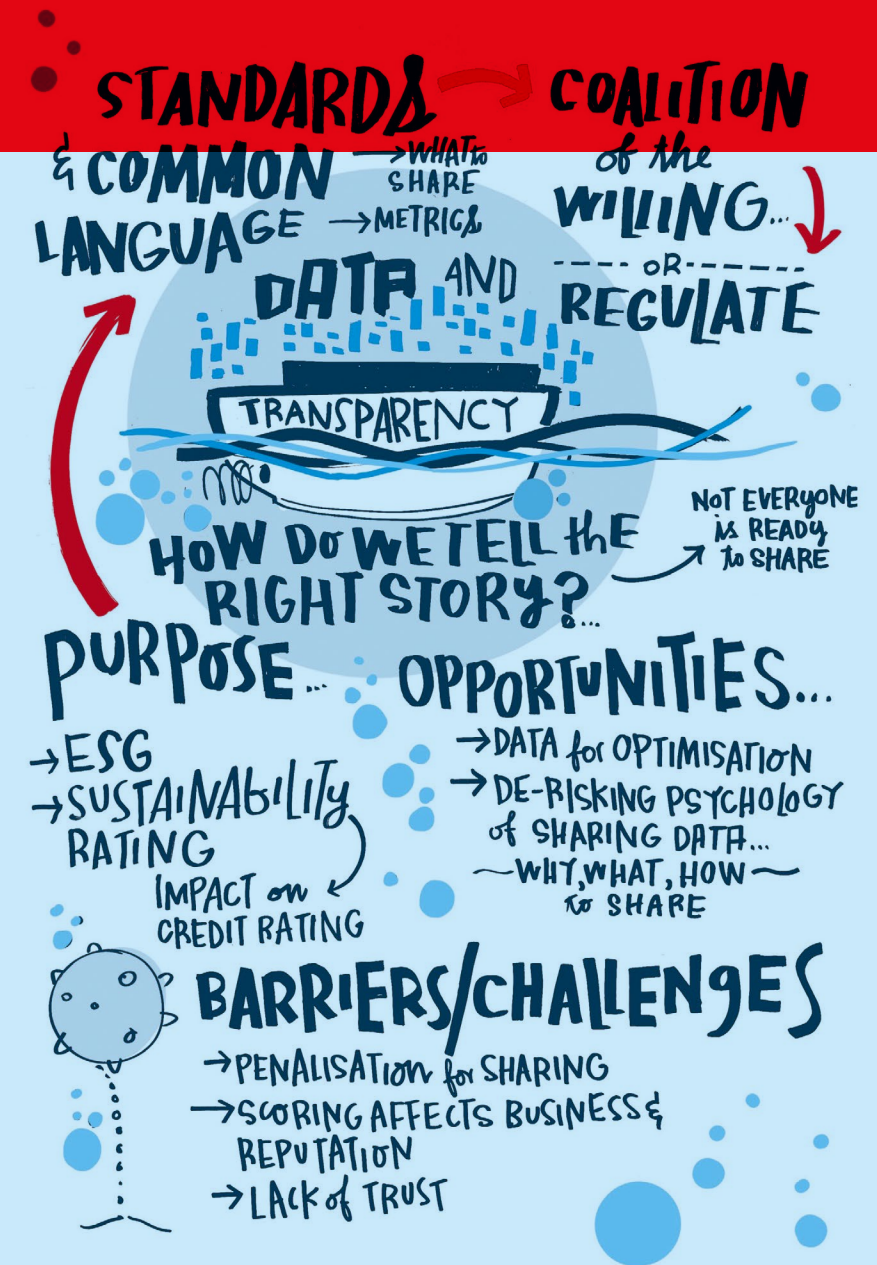 STANDARDS
& COMMON
LANGUAGE
→ WHAT to
SHARE
→ METRICS
COALITION
of the
WILLING...
----- OR -----
REGULATE
DATA AND
TRANSPARENCY
HOW DO WE TELL the
RIGHT STORY?...
NOT EVERYONE
is READY
to SHARE
PURPOSE...
→ ESG
→ SUSTAINABILITY
RATING
IMPACT on
CREDIT RATING
OPPORTUNITIES...
→ DATA for OPTIMISATION
→ DE-RISKING PSYCHOLOGY
of SHARING DATA...
~ WHY, WHAT, HOW ~
to SHARE
BARRIERS/CHALLENGES
→ PENALISATION for SHARING
→ SCORING AFFECTS BUSINESS &
REPUTATION
→ LACK of TRUST